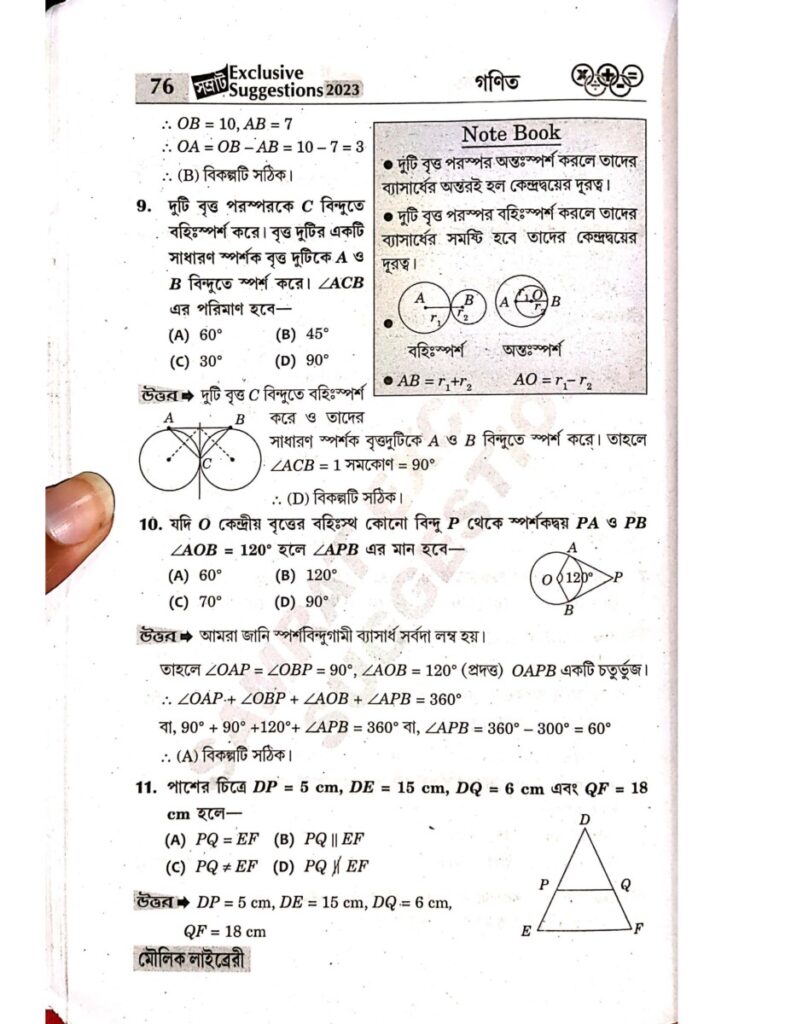 76 সম্রাট Exclusive Suggestions 2023 গণিত
∴ OB = 10, AB = 7
∴ OA = OB – AB = 10 – 7 = 3
∴ (B) বিকল্পটি সঠিক।
9. দুটি বৃত্ত পরস্পরকে C বিন্দুতে
বহিঃস্পর্শ করে। বৃত্ত দুটির একটি
সাধারণ স্পর্শক বৃত্ত দুটিকে A ও
B বিন্দুতে স্পর্শ করে। ∠ACB
এর পরিমাণ হবে—
(A) 60° (B) 45°
(C) 30° (D) 90°
Note Book
● দুটি বৃত্ত পরস্পর অন্তঃস্পর্শ করলে তাদের
ব্যাসার্ধের অন্তরই হল কেন্দ্রদ্বয়ের দূরত্ব।
● দুটি বৃত্ত পরস্পর বহিঃস্পর্শ করলে তাদের
ব্যাসার্ধের সমষ্টি হবে তাদের কেন্দ্রদ্বয়ের
দূরত্ব।
A B r₁ r₂ A r₁ O r₂ B
বহিঃস্পর্শ অন্তঃস্পর্শ
● AB = r₁+r₂ AO = r₁– r₂
উত্তর ➡ দুটি বৃত্ত C বিন্দুতে বহিঃস্পর্শ
করে ও তাদের
সাধারণ স্পর্শক বৃত্তদুটিকে A ও B বিন্দুতে স্পর্শ করে। তাহলে
∠ACB = 1 সমকোণ = 90°
∴ (D) বিকল্পটি সঠিক।
A B C
10. যদি O কেন্দ্রীয় বৃত্তের বহিঃস্থ কোনো বিন্দু P থেকে স্পর্শকদ্বয় PA ও PB
∠AOB = 120° হলে ∠APB এর মান হবে—
(A) 60° (B) 120°
(C) 70° (D) 90°
A O 120° P B
উত্তর ➡ আমরা জানি স্পর্শবিন্দুগামী ব্যাসার্ধ সর্বদা লম্ব হয়।
তাহলে ∠OAP = ∠OBP = 90°, ∠AOB = 120° (প্রদত্ত) OAPB একটি চতুর্ভুজ।
∴ ∠OAP + ∠OBP + ∠AOB + ∠APB = 360°
বা, 90° + 90° +120°+ ∠APB = 360° বা, ∠APB = 360° – 300° = 60°
∴ (A) বিকল্পটি সঠিক।
11. পাশের চিত্রে DP = 5 cm, DE = 15 cm, DQ = 6 cm এবং QF = 18
cm হলে—
(A) PQ = EF (B) PQ || EF
(C) PQ ≠ EF (D) PQ ∦ EF
D P Q E F
উত্তর ➡ DP = 5 cm, DE = 15 cm, DQ = 6 cm,
QF = 18 cm
মৌলিক লাইব্রেরী